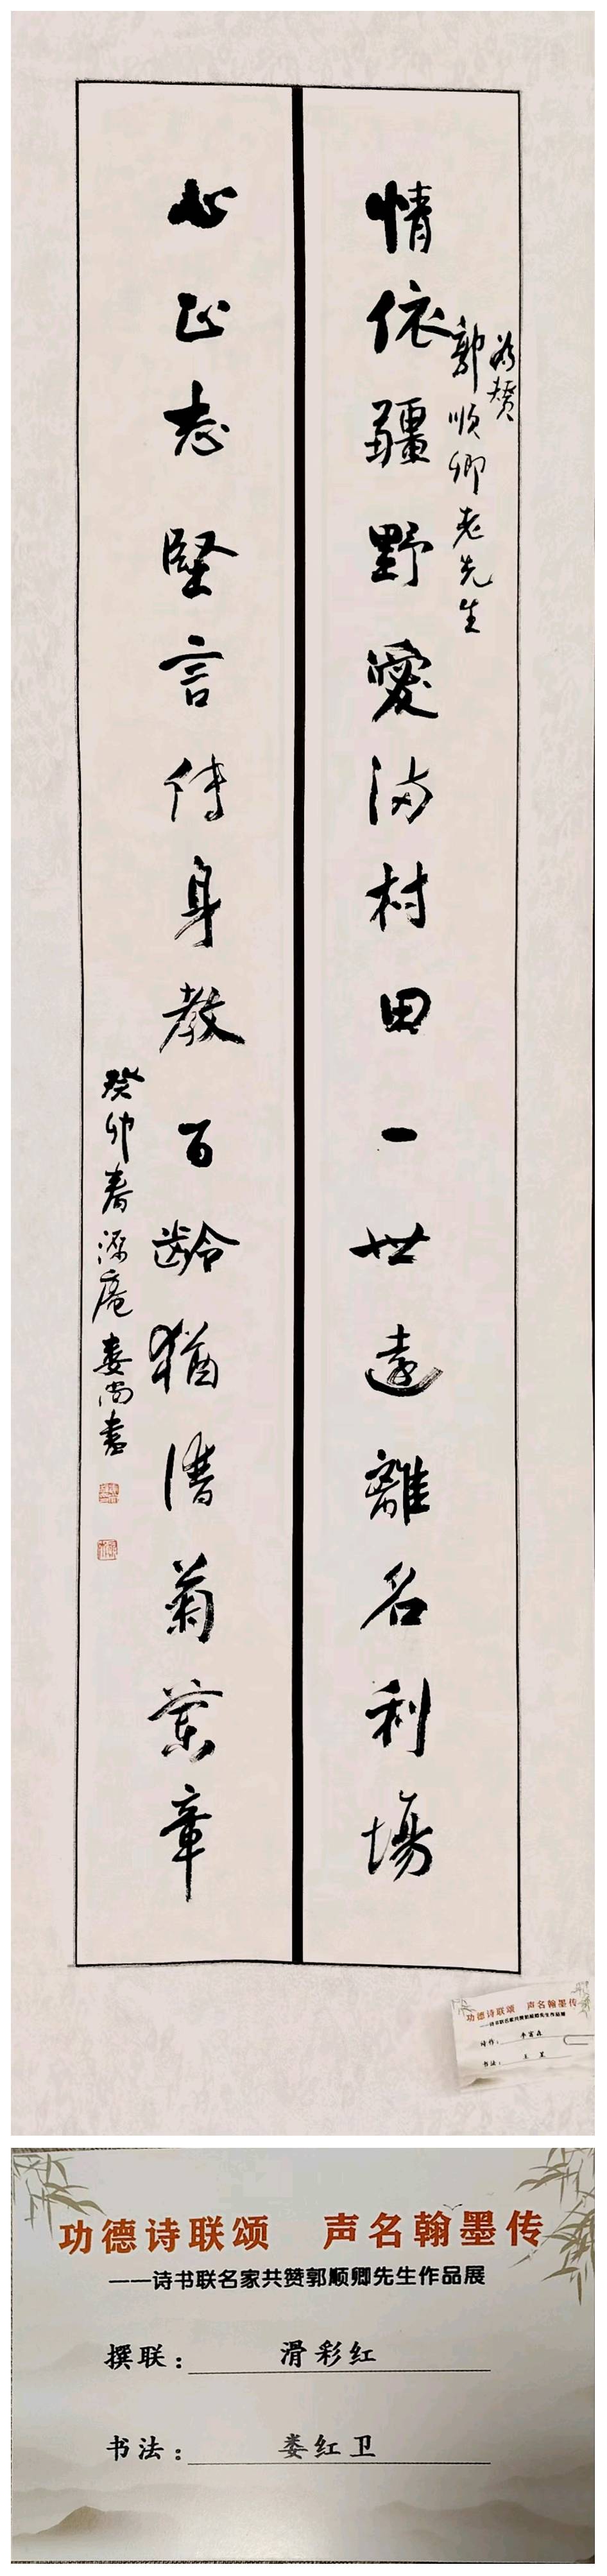 为赞
郭顺卿老先生
情依疆野愛满村田一世遠離名利場
心正志堅言传身教百齡猶清菊蘭章
癸卯春源庵娄尚書
功德诗联颂 声名翰墨传
——诗书联名家共赞郭顺卿先生作品展
诗作：
书法：
功德诗联颂 声名翰墨传
——诗书联名家共赞郭顺卿先生作品展
撰联：滑彩红
书法：娄红卫